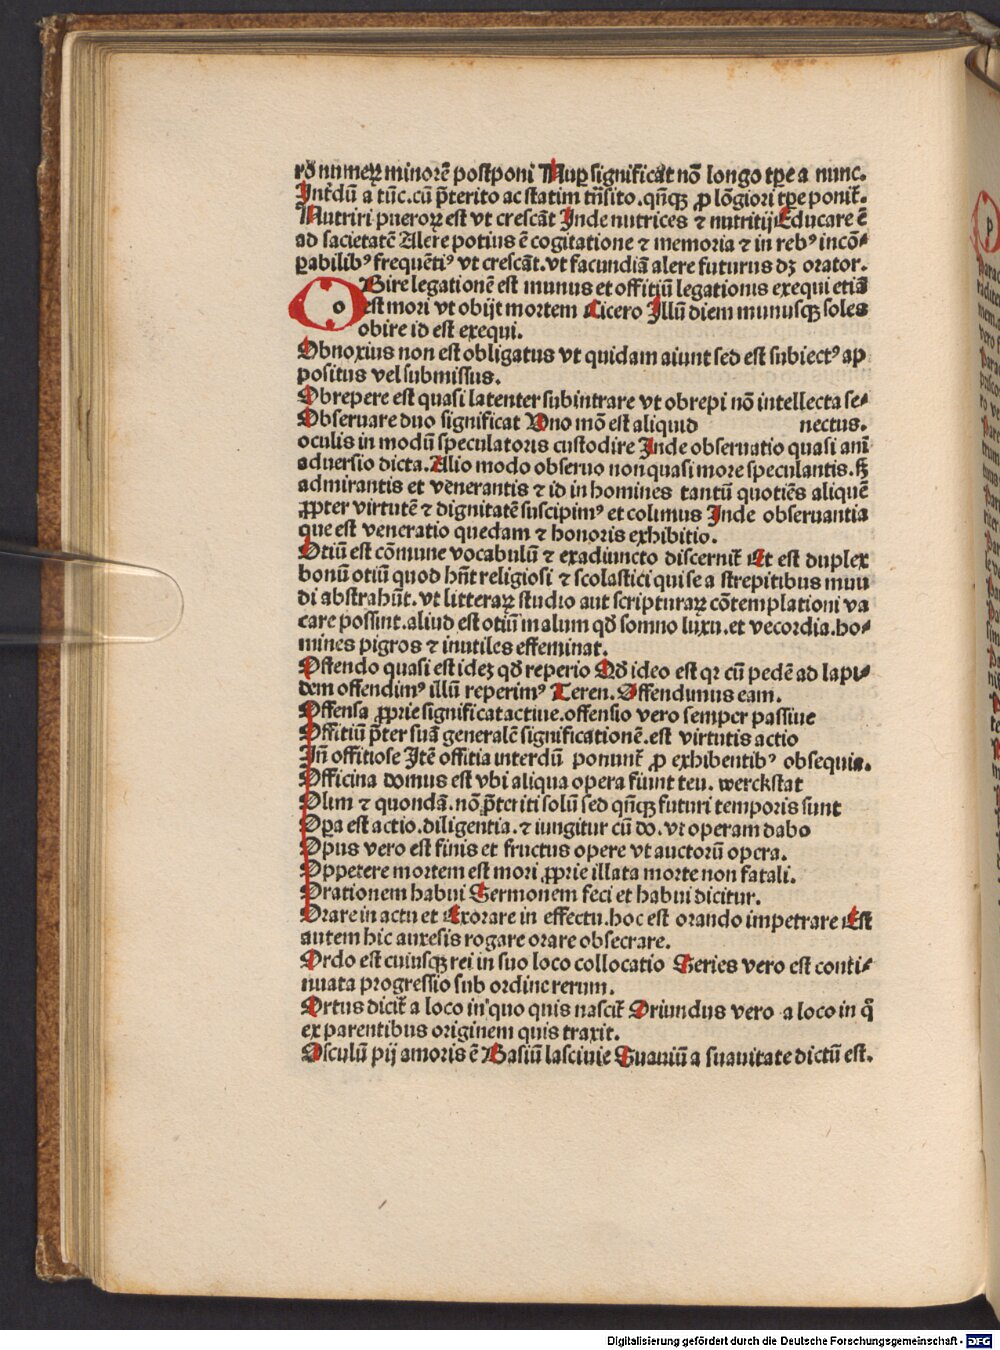 rō numeꝝ minorē postponi Nuꝑ significat nō longo tꝑe a nunc.
Interdū a tūc.cū p̄terito ac statim trāsito.qn̄qꝫ ꝓ lōgiori tꝑe ponit᷑.
Nutriri pueroꝝ est vt crescāt Inde nutrices ⁊ nutritij Educare ē
ad sacietatē Alere potius ē cogitatione ⁊ memoria ⁊ in rebꝰ incō⸗
ꝑabilibꝰ frequētiꝰ vt crescāt.vt facundiā alere futurus dꝫ orator.
o Bire legationē est munus et offitiū legationis exequi etiā
est mori vt obijt mortem Cicero Illū diem munusqꝫ soles
obire id est exequi.
Obnoxius non est obligatus vt quidam aiunt sed est subiectꝰ ap
positus vel submissus.
Obrepere est quasi latenter subintrare vt obrepi nō intellecta se⸗
Obseruare duo significat Uno mō est aliquid nectus.
oculis in modū speculatoris custodire Inde obseruatio quasi ani
aduersio dicta.Alio modo obseruo non quasi more speculantis.sꝫ
admirantis et venerantis ⁊ id in homines tantū quotiēs aliquē
ꝓpter virtutē ⁊ dignitatē suscipimꝰ et colimus Inde obseruantia
que est veneratio quedam ⁊ honoris exhibitio.
Otiū est cōmune vocabulū ⁊ ex adiuncto discernit᷑ Et est duplex
bonū otiū quod hn̄t religiosi ⁊ scolastici qui se a strepitibus mun
di abstrahūt.vt litteraꝝ studio aut scripturaꝝ cōtemplationi va
care possint.aliud est otiū malum qd̄ somno luxu.et vecordia.ho⸗
mines pigros ⁊ inutiles effeminat.
Ostendo quasi est ideꝫ qd̄ reperio Qd̄ ideo est qꝛ cū pedē ad lapi⸗
dem offendimꝰ illū reperimꝰ Teren. Offendimus eam.
Offensa ꝓprie significat actiue.offensio vero semper passiue
Offitiū p̄ter suā generalē significationē.est virtutis actio
Inn̄ offitiose Itē offitia interdū ponunt᷑ ꝓ exhibentibꝰ obsequia.
Officina domus est vbi aliqua opera fiunt teu. werckstat
Olim ⁊ quondā.nō p̄teriti solū sed qn̄qꝫ futuri temporis sunt
Oꝑa est actio.diligentia.⁊ iungitur cū do.vt operam dabo
Opus vero est finis et fructus opere vt auctorū opera.
Oppetere mortem est mori ꝓprie illata morte non fatali.
Orationem habui Sermonem feci et habui dicitur.
Orare in actu et Exorare in effectu.hoc est orando impetrare Est
autem hic auxesis rogare orare obsecrare.
Ordo est cuiusqꝫ rei in suo loco collocatio Series vero est conti⸗
nuata progressio sub ordine rerum.
Ortus dicit᷑ a loco in quo quis nascit᷑ Oriundus vero a loco in q̄
ex parentibus originem quis traxit.
Osculū pij amoris ē Basiū lasciuie Suauiū a suauitate dictū est.
p
Digitalisierung gefördert durch die Deutsche Forschungsgemeinschaft - DFG